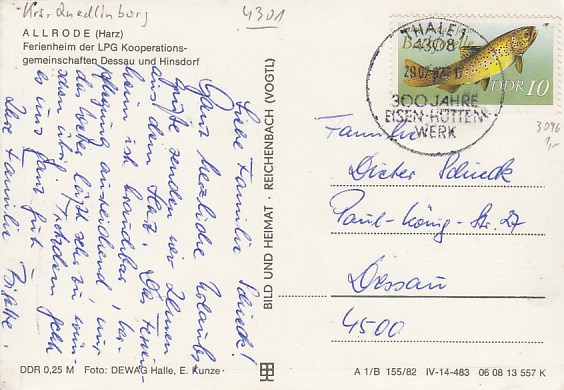 Krs. Quedlinburg
4301
ALLRODE (Harz)
Ferienheim der LPG Kooperations-
gemeinschaften Dessau und Hinsdorf
Liebe Familie Schieck!
Ganz herzliche Urlaubs-
grüße senden wir Ihnen
aus dem Harz. Das Ferien-
heim ist brauchbar, Ver-
pflegung ausreichend, nur
das Wetter läßt sehr zu wün-
schen übrig. Trotzdem geht
es uns ganz gut.
Ihre Familie
BILD UND HEIMAT · REICHENBACH (VOGTL)
THALE 1
4308
300 JAHRE
EISEN-HÜTTEN-
WERK
Bachforelle
DDR 10
3096
1,-
Familie
Dieter Schieck
Paul-König-Str. 27
Dessau
4500
DDR 0,25 M Foto: DEWAG Halle, E. Kunze
A 1/B 155/82 IV-14-483 06 08 13 557 K